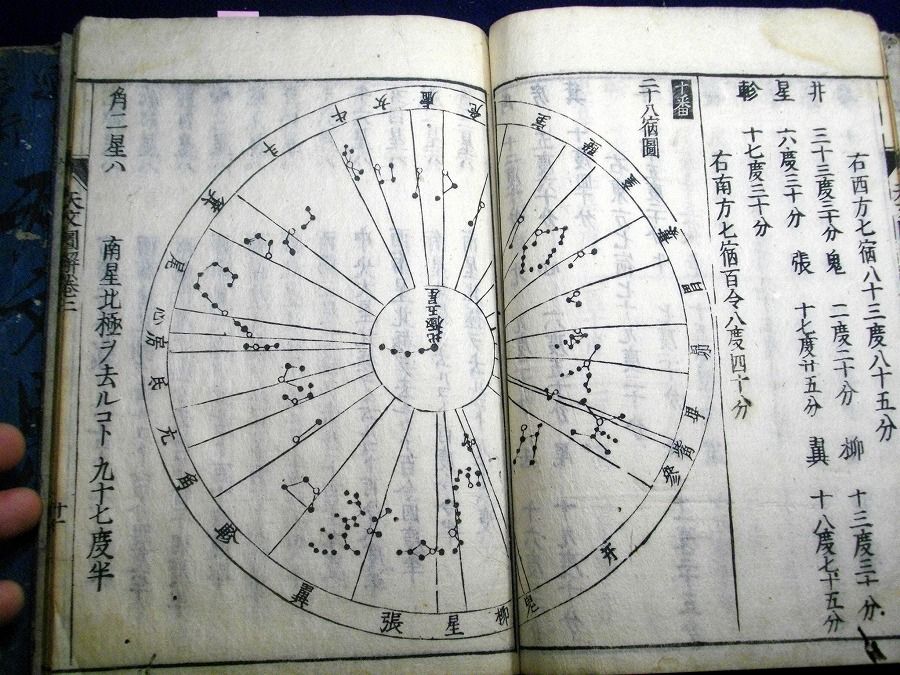 右西方七宿八十三度八十五分
井 三十三度三十分 鬼 二度二十分 柳 十三度三十分
星 六度三十分 張 十七度廿五分 翼 十八度七十五分
軫 十七度三十分
右南方七宿百令八度四十分
十番
二十八宿圖
危
虚
女
牛
斗
箕
尾
心
房
氐
亢
角
軫
翼
張
星
柳
鬼
井
參
觜
畢
昴
胃
婁
奎
壁
室
北極五星
角二星ハ
南星北極ヲ去ルコト 九十七度半
天文圖解卷二
十一